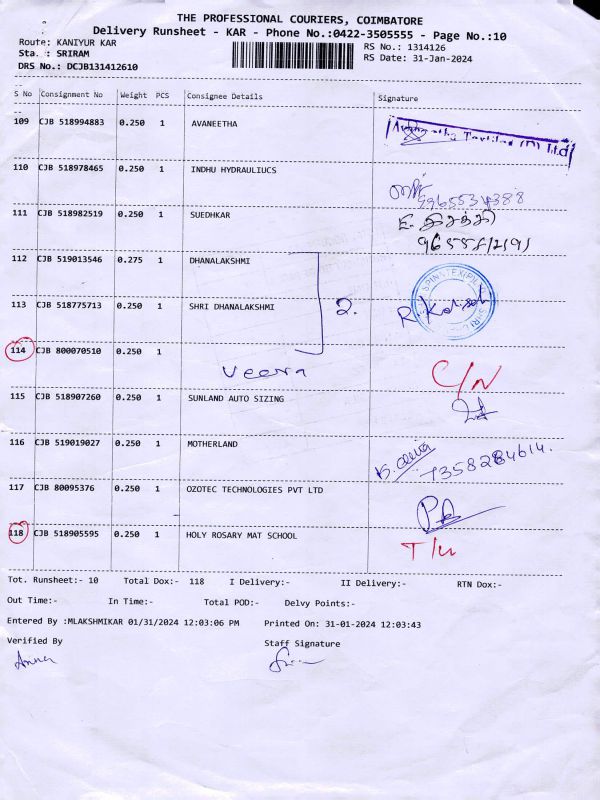 THE PROFESSIONAL COURIERS, COIMBATORE
Delivery Runsheet - KAR - Phone No.:0422-3505555 - Page No.:10
Route: KANIYUR KAR
RS No.: 1314126
Sta. : SRIRAM
RS Date: 31-Jan-2024
DRS No.: DCJB131412610
S No Consignment No Weight PCS Consignee Details Signature
109 CJB 518994883 0.250 1 AVANEETHA
110 CJB 518978465 0.250 1 INDHU HYDRAULIUCS
9965534388
111 CJB 518982519 0.250 1 SUEDHKAR
E.
112 CJB 519013546 0.275 1 DHANALAKSHMI
113 CJB 518775713 0.250 1 SHRI DHANALAKSHMI 2.
114 CJB 800070510 0.250 1 Veera C/N
115 CJB 518907260 0.250 1 SUNLAND AUTO SIZING
116 CJB 519019027 0.250 1 MOTHERLAND
7358284614.
117 CJB 80095376 0.250 1 OZOTEC TECHNOLOGIES PVT LTD
118 CJB 518905595 0.250 1 HOLY ROSARY MAT SCHOOL
Tot. Runsheet:- 10 Total Dox:- 118 I Delivery:- II Delivery:- RTN Dox:-
Out Time:- In Time:- Total POD:- Delvy Points:-
Entered By :MLAKSHMIKAR 01/31/2024 12:03:06 PM Printed On: 31-01-2024 12:03:43
Verified By Staff Signature